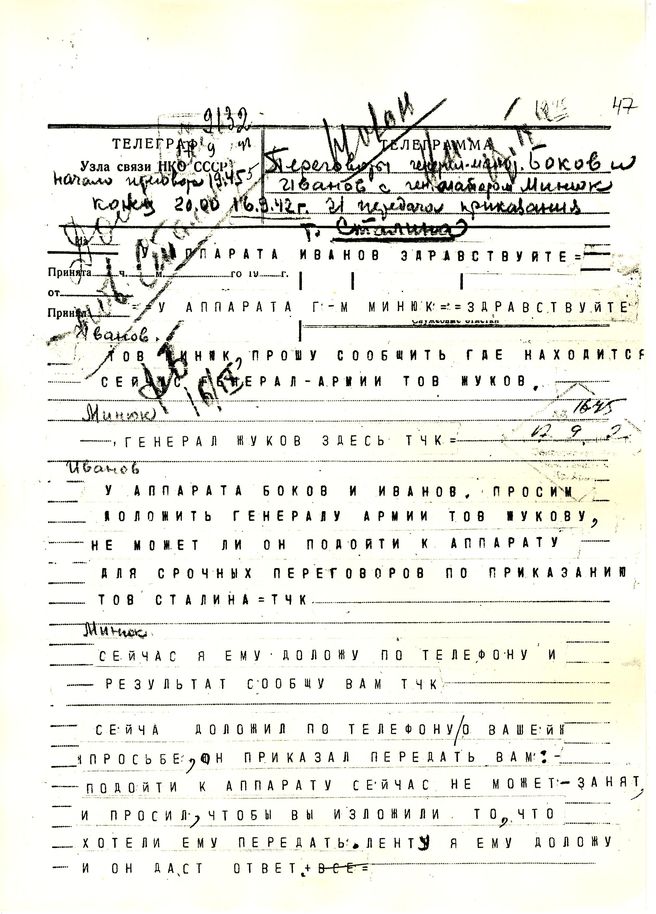 47
9132
ТЕЛЕГРАФ
ТЕЛЕГРАММА
Узла связи НКО СССР
Переговоры генерал-майор. Боков и
начало 19.45
Иванов с ген. майором Минюк
конец 20.00 16.9.42г. И передача приказания
т. Сталина
У АППАРАТА ИВАНОВ ЗДРАВСТВУЙТЕ=
Принята ч. м. го 19 г.
от
Принял
У АППАРАТА Г-М МИНЮК==ЗДРАВСТВУЙТЕ
Служебные отметки
Иванов.
ТОВ МИНЮК, ПРОШУ СООБЩИТЬ ГДЕ НАХОДИТСЯ
СЕЙЧАС ГЕНЕРАЛ-АРМИИ ТОВ ЖУКОВ.
16/IX
Минюк
1645
17 9
ГЕНЕРАЛ ЖУКОВ ЗДЕСЬ ТЧК=
Иванов
У АППАРАТА БОКОВ И ИВАНОВ. ПРОСИМ
ДОЛОЖИТЬ ГЕНЕРАЛУ АРМИИ ТОВ ЖУКОВУ,
НЕ МОЖЕТ ЛИ ОН ПОДОЙТИ К АППАРАТУ
ДЛЯ СРОЧНЫХ ПЕРЕГОВОРОВ ПО ПРИКАЗАНИЮ
ТОВ СТАЛИНА=ТЧК
Минюк
СЕЙЧАС Я ЕМУ ДОЛОЖУ ПО ТЕЛЕФОНУ И
РЕЗУЛЬТАТ СООБЩУ ВАМ ТЧК
СЕЙЧА ДОЛОЖИЛ ПО ТЕЛЕФОНУ/О ВАШЕЙ
ПРОСЬБЕ, ОН ПРИКАЗАЛ ПЕРЕДАТЬ ВАМ:-
ПОДОЙТИ К АППАРАТУ СЕЙЧАС НЕ МОЖЕТ-ЗАНЯТ,
И ПРОСИЛ, ЧТОБЫ ВЫ ИЗЛОЖИЛИ ТО, ЧТО
ХОТЕЛИ ЕМУ ПЕРЕДАТЬ. ЛЕНТУ Я ЕМУ ДОЛОЖУ
И ОН ДАСТ ОТВЕТ.+ВСЕ=